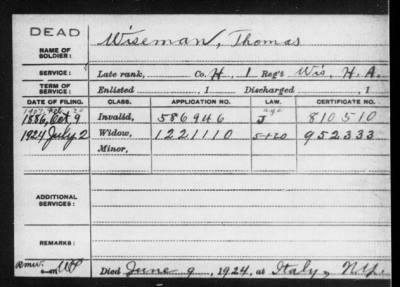 DEAD
NAME OF SOLDIER: Wiseman, Thomas
SERVICE: Late rank, Co. H, 1 Reg't Wis. H. A.
TERM OF SERVICE: Enlisted , 1 Discharged , 1
DATE OF FILING. CLASS. APPLICATION NO. LAW. CERTIFICATE NO.
1886, Oct. 9 Invalid, 586946 J 810510
1924 July 2 Widow, 1221110 5+20 952333
Minor,
ADDITIONAL SERVICES:
REMARKS:
Died June 9, 1924, at Italy, N.Y.